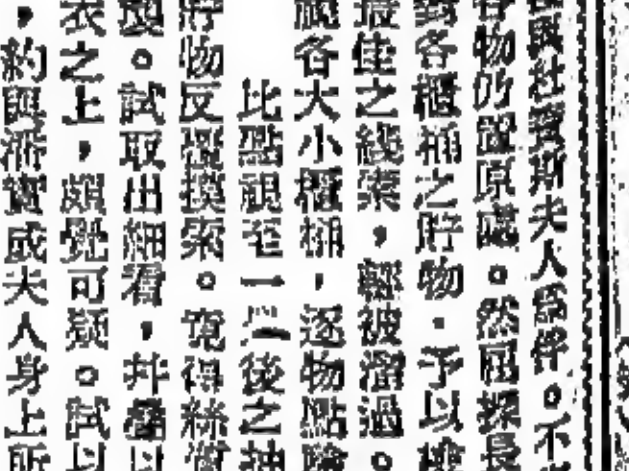 國社賓斯夫人為伴。不
物仍置原處。然屈探長
對各櫃桶之貯物。予以
最佳之線索，輕被溜過。
視各大小櫃桶，逐物點驗
比點視至一 後之抽
貯物反覆摸索。竟得絲質
。試取出細看，并疊以
衣之上，頗覺可疑。試以
，約與潘寶咸夫人身上所